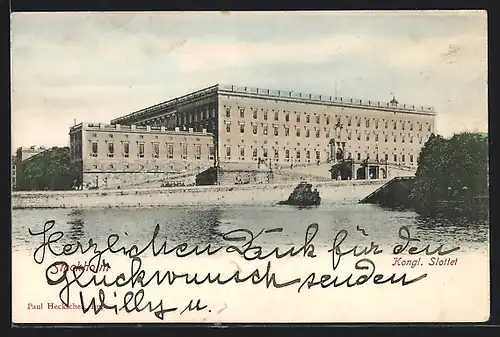 Herzlichen Dank für den
Stockholm
Kongl. Slottet
Glückwunsch senden
Willy u.
Paul Heckscher